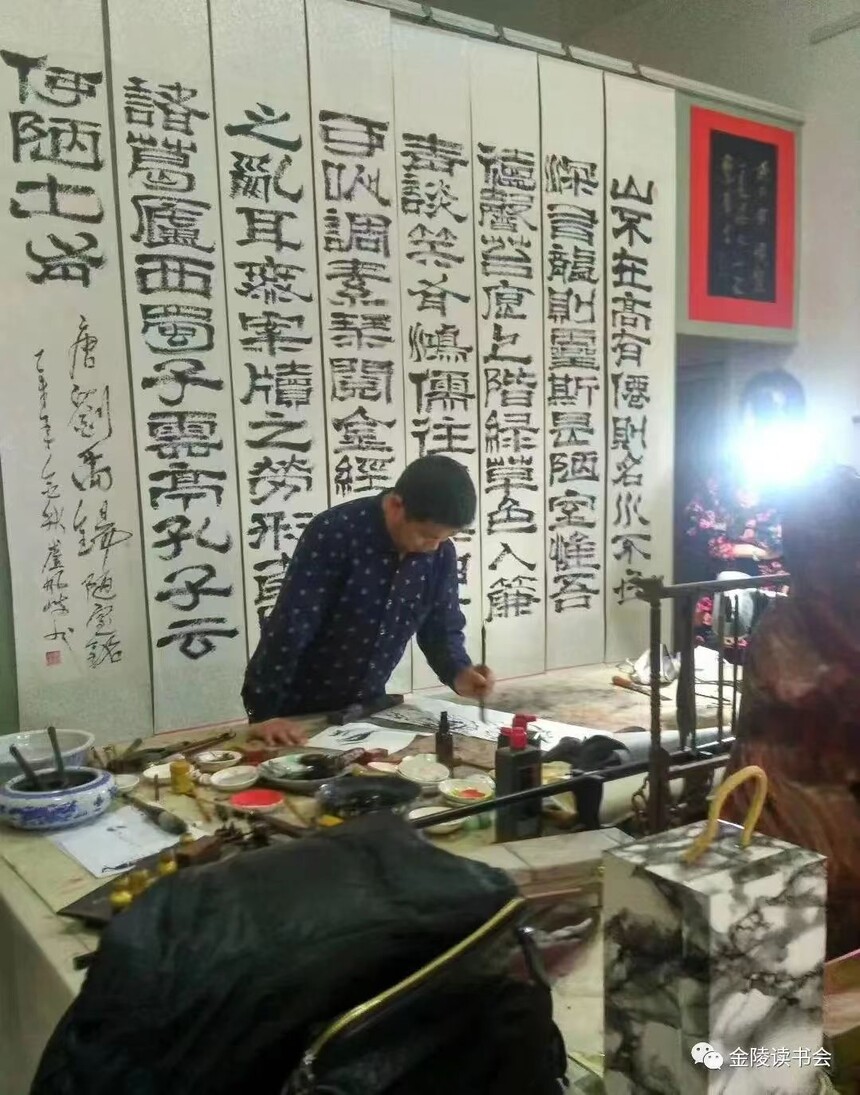 山不在高有僊則名水不在
深有龍則靈斯是陋室惟吾
德馨苔痕上階綠草色入簾
青談笑有鴻儒往
可以調素琴閱金經
之亂耳無案牘之勞形南
諸葛廬西蜀子雲亭孔子云
何陋之有
唐劉禹錫陋室銘
乙未年金秋
金陵读书会